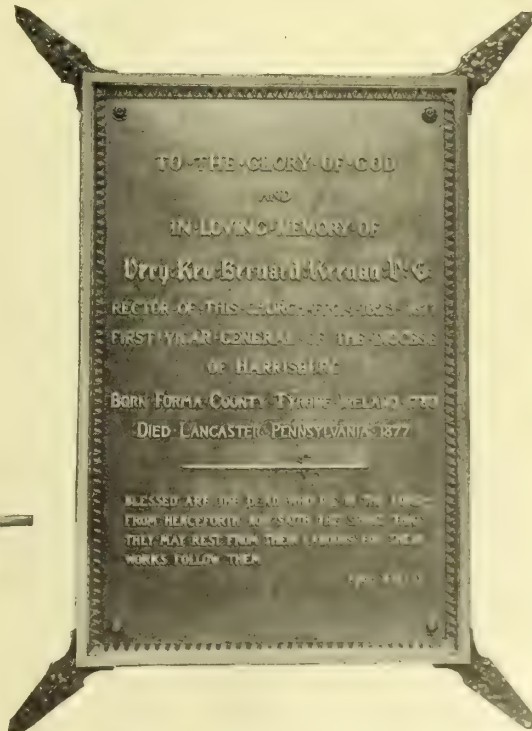 TO·THE·GLORY·OF·GOD
AND
IN·LOVING·MEMORY·OF
Very·Rev·Bernard·Keenan·V·G·
RECTOR·OF·THIS·CHURCH·FROM·1823·
FIRST·VICAR·GENERAL·OF·THE·DIOCESE
OF·HARRISBURG
BORN·FORMA·COUNTY·TYRONE·IRELAND·
DIED·LANCASTER·PENNSYLVANIA·1877
BLESSED ARE THE DEAD WHO DIE IN THE LORD
FROM HENCEFORTH NOW SAITH THE SPIRIT THAT
THEY MAY REST FROM THEIR LABOURS FOR THEIR
WORKS FOLLOW THEM